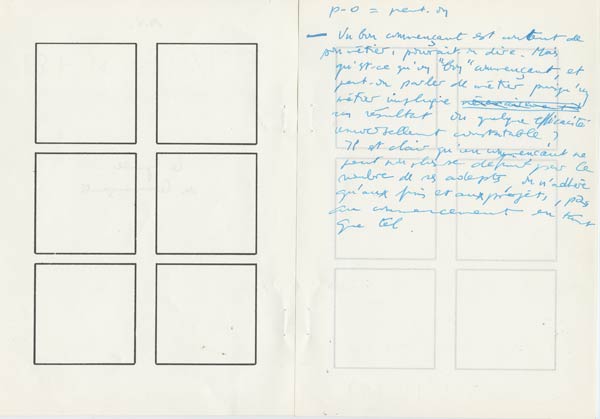 p-o = peut-on
— Un bon commençant est content de
son métier, pourrait-on dire. Mais
qu'est-ce qu'un "bon" commençant, et
peut-on parler de métier puisqu'un
métier implique nécessairement
un résultat ou quelque efficacité
universellement constatable ?
Il est clair qu'un commençant ne
peut pas se définir par le
nombre de ses adeptes. On n'adhère
qu'aux fins et aux projets, pas
au commencement en tant
que tel.